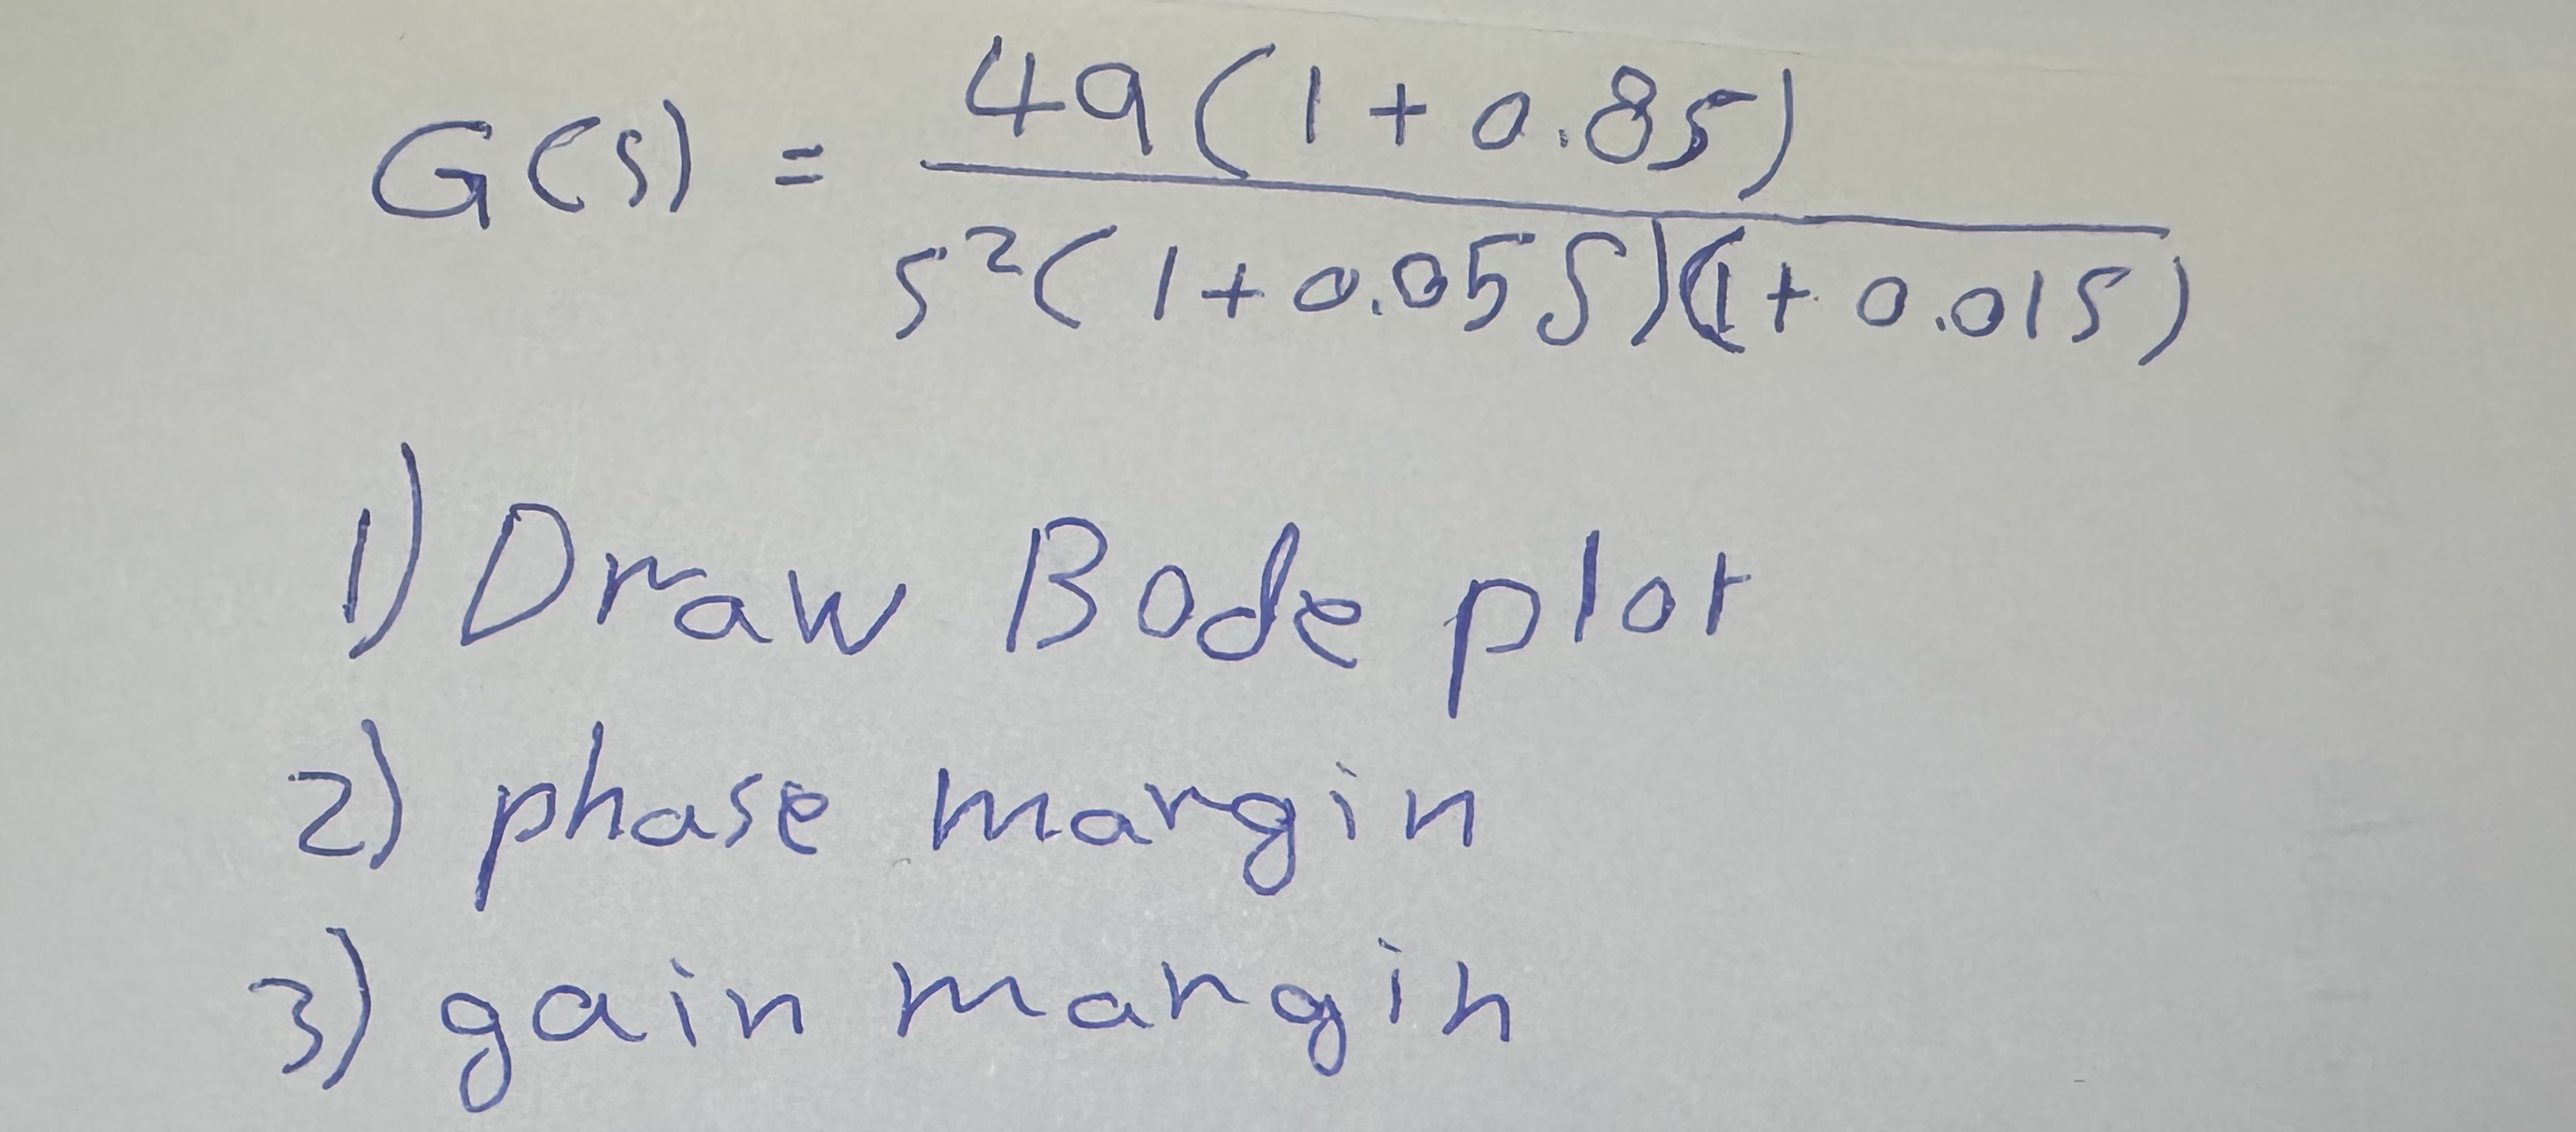 G(s) = 49(1+0.8s)
s²(1+0.05s)(1+0.01s)
1) Draw Bode plot
2) phase margin
3) gain margin